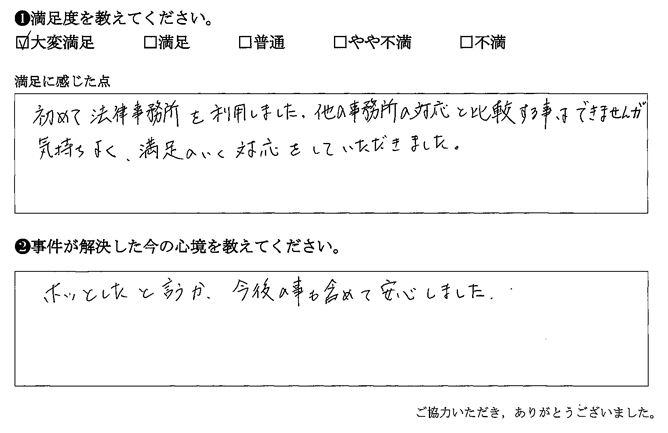 ❶満足度を教えてください。
☑大変満足 □満足 □普通 □やや不満 □不満
満足に感じた点
初めて法律事務所を利用しました。他の事務所の対応と比較する事はできませんが
気持ちよく、満足のいく対応をしていただきました。
❷事件が解決した今の心境を教えてください。
ホッとしたと言うか、今後の事も含めて安心しました。
ご協力いただき，ありがとうございました。